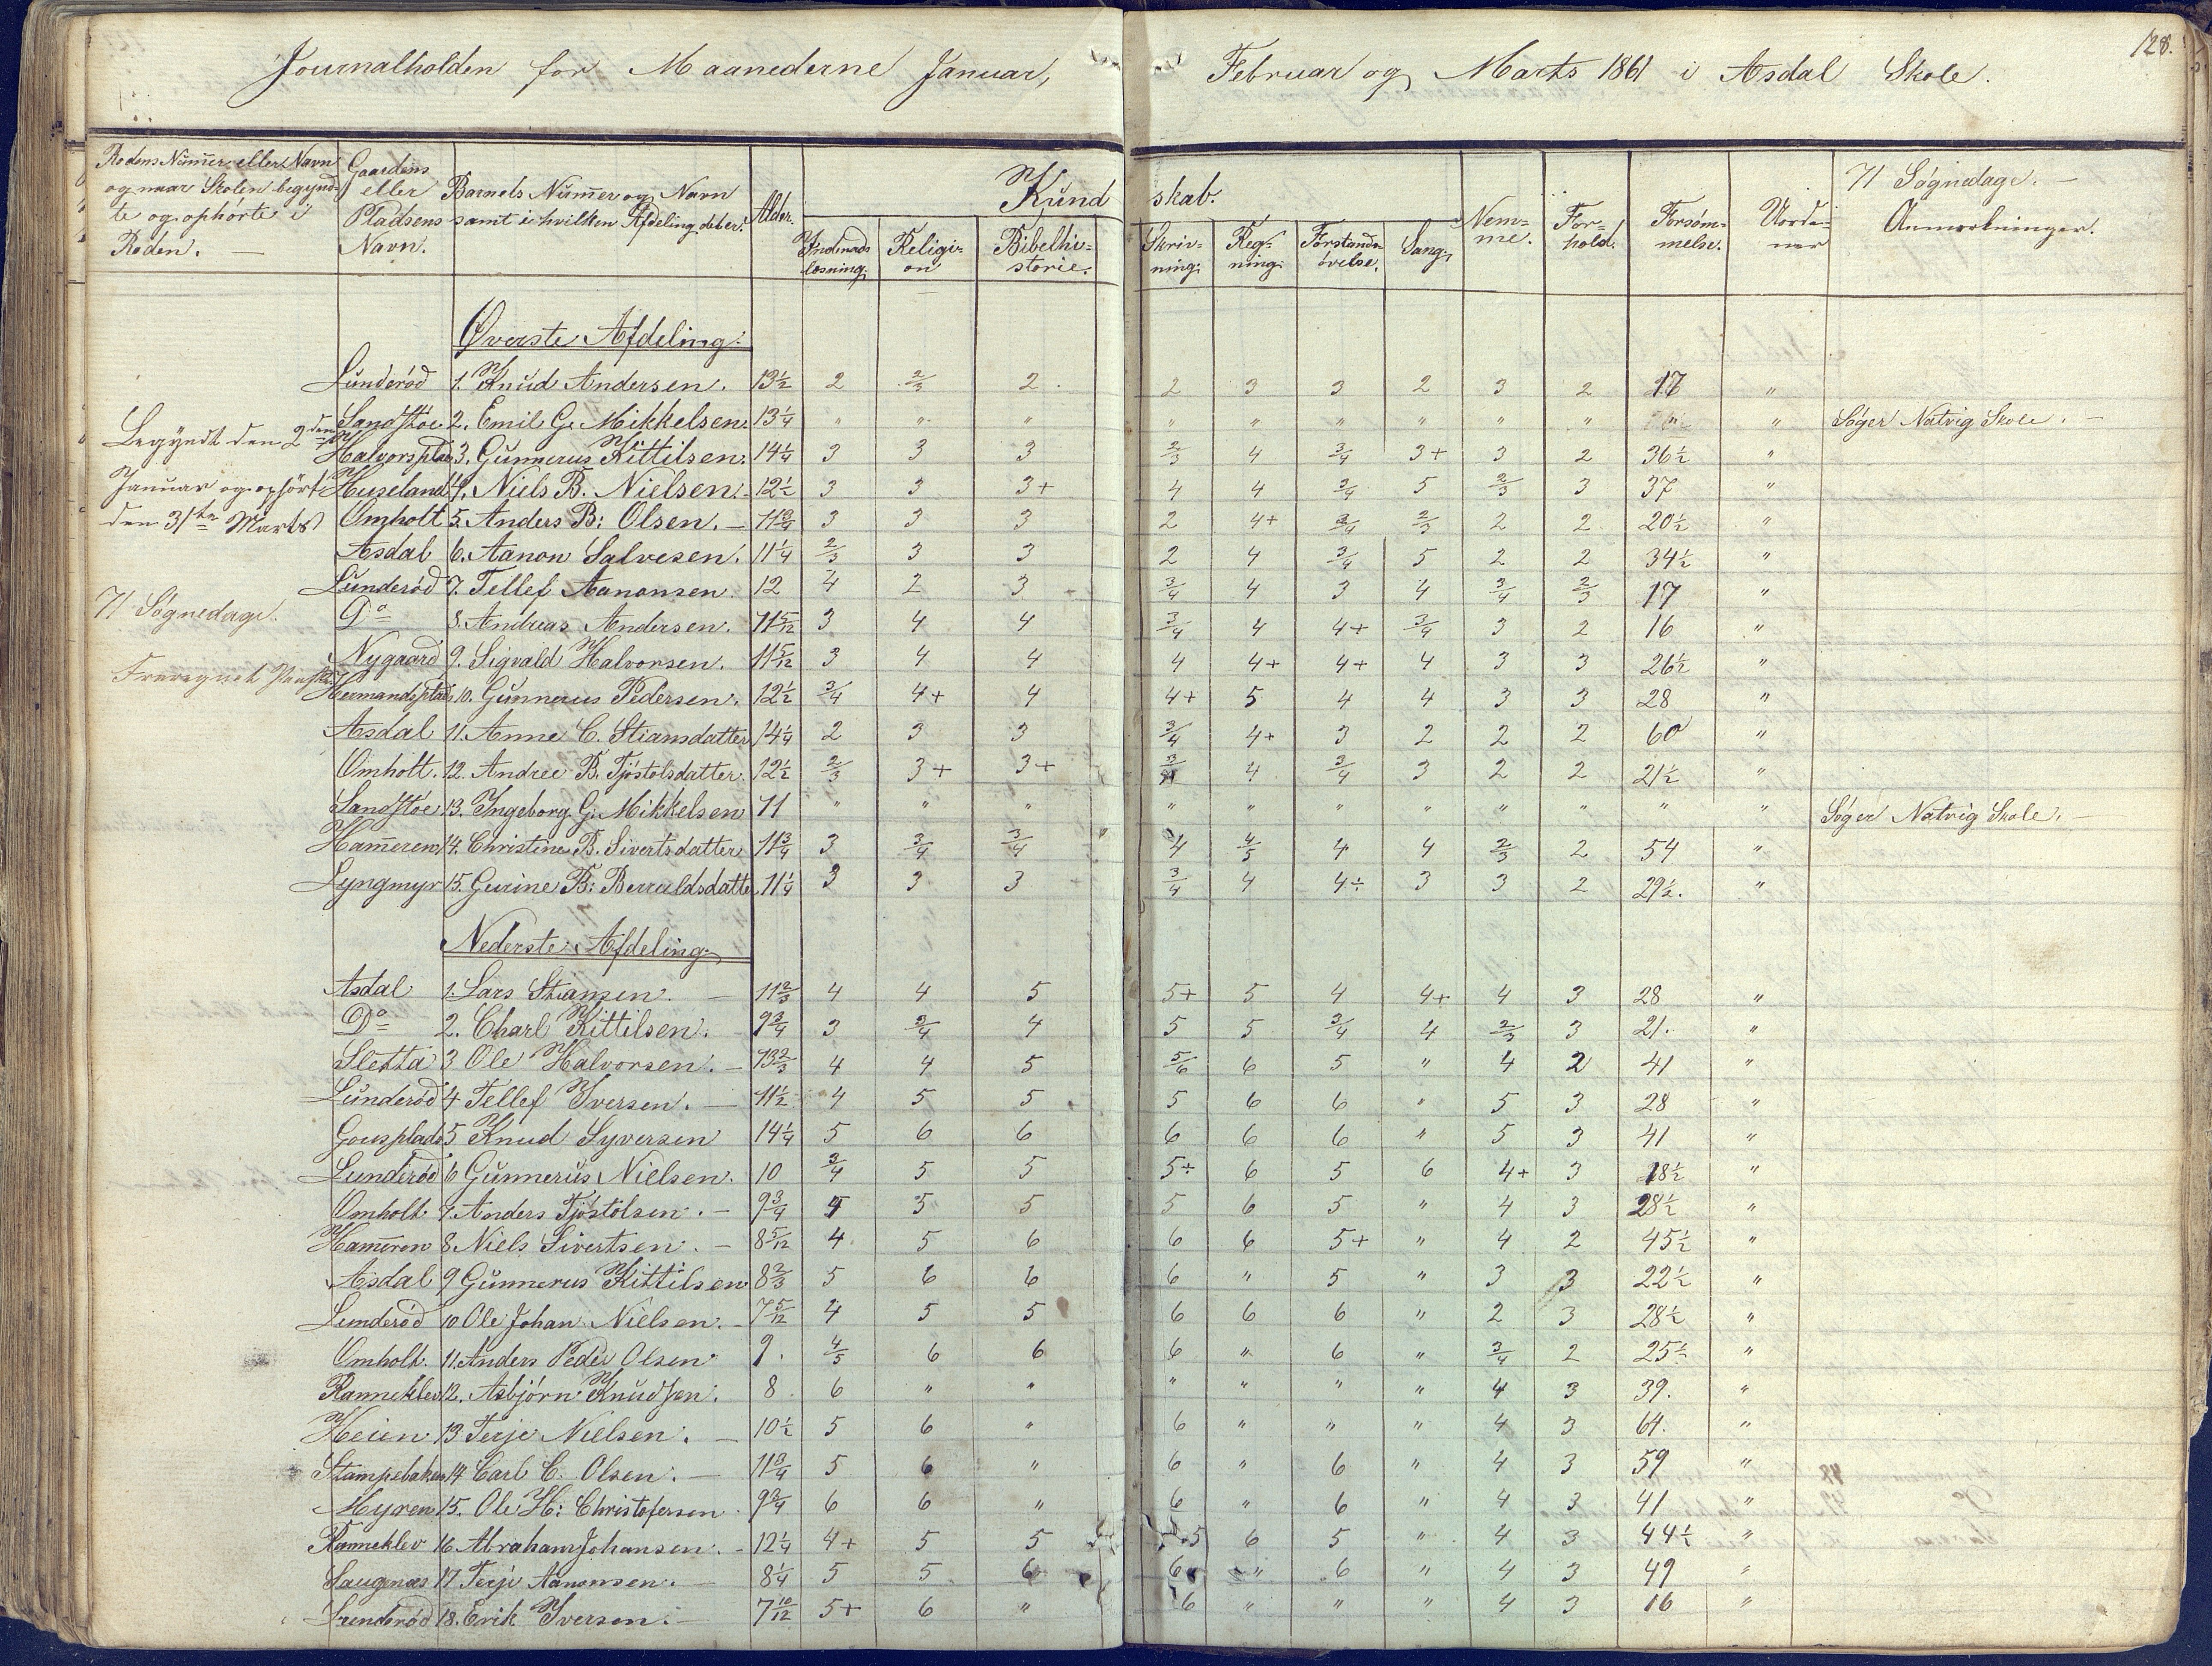 Journalholden for Maanederne Januar, Februar og Marts 1861 i Asdal Skole.
128.
Rodens Nummer eller Navn og naar Skolen begyndte og ophørte i Roden.
Gaardens eller Pladsens Navn.
Barnets Nummer og Navn samt i hvilken Afdeling det er.
Alder.
Kundskab.
Indenadslæsning.
Religion
Bibelhistorie.
Skrivning.
Regning.
Forstandsøvelse.
Sang.
Nemme.
Forhold.
Forsømmelse.
Uordener
71 Søgnedage.
Anmærkninger.
Begyndt den 2den
Januar og ophørt
den 31te Marts
71 Søgnedage.
Øverste Afdeling.
Lunderød 1. Knud Andersen. 13½ 2 2/3 2 2 3 3 2 3 2 17 "
Sandstøe 2. Emil G. Mikkelsen. 13¼ " " " " " " " " " " " Søger Natvig Skole.
Halvorsplads 3. Gunnerus Kittilsen. 14¼ 3 3 3 2/3 4 3/4 3+ 3 2 36½ "
Huseland 4. Niels B. Nielsen. 12½ 3 3 3+ 4 4 3/4 5 2/3 3 37 "
Omholt 5. Anders B: Olsen. 11¾ 3 3 3 2 4+ 3/4 2/3 2 2 20½ "
Asdal 6. Aanon Salvesen. 11¼ 2/3 3 3 2 4 3/4 5 2 2 34½ "
Lunderød 7. Tellef Aanonsen. 12 4 2 3 3/4 4 3 4 3/4 2/3 17 "
Do 8. Andreas Andersen. 11 5/12 3 4 4 3/4 4 4+ 3/4 3 2 16 "
Nygaard 9. Sigvald Halvorsen. 11 5/12 3 4 4 4 4+ 4+ 4 3 3 26½ "
Hermandsplads 10. Gunnerus Pedersen. 12½ 3/4 4+ 4 4+ 5 4 4 3 3 28 "
Asdal 11. Anne C. Stiansdatter 14¼ 2 3 3 3/4 4+ 3 2 2 2 60 "
Omholt. 12. Andree B. Tjøstolsdatter. 12½ 2/3 3+ 3+ 3/4 4 3/4 3 2 2 21½ "
Sandstøe 13. Ingeborg G. Mikkelsen 11 " " " " " " " " " " " Søger Natvig Skole.
Hameren 14. Christine B. Sivertsdatter 11¾ 3 3/4 3/4 4 4/5 4 4 2/3 2 54 "
Lyngmyr 15. Gurine B: Berruldsdatte 11¼ 3 3 3 3/4 4 4÷ 3 3 2 29½. "
Nederste Afdeling.
Asdal 1. Lars Stiansen. 11 2/3 4 4 5 5+ 5 4 4+ 4 3 28 "
Do 2. Charl Kittilsen. 9¾ 3 3/4 4 5 5 3/4 4 2/3 3 21. "
Sletta 3 Ole Halvorsen. 13 2/3 4 4 5 5/6 6 5 " 4 2 41 "
Lunderød 4 Tellef Iversen. 11½ 4 5 5 5 6 6 " 5 3 28 "
Gousplads 5 Knud Syversen 14¼ 5 6 6 6 6 6 " 5 3 41 "
Lunderød 6 Gunnerus Nielsen. 10 3/4 5 5 5÷ 6 5 6 4+ 3 18½ "
Omholt 7. Anders Tjøstolsen. 9¾ 4 5 5 5 6 5 " 4 3 28½ "
Hameren 8 Niels Sivertsen. 8 5/12 4 5 6 6 6 5+ " 4 2 45½ "
Asdal 9 Gunnerus Kittilsen 8 2/3 5 6 6 6 " 5 " 3 3 22½ "
Lunderød 10 Ole Johan Nielsen. 7 5/12 4 5 5 6 6 6 " 2 3 28½ "
Omholt. 11. Anders Peder Olsen 9. 4/5 6 6 6 " 6 " 3/4 2 25½ "
Ranneklev 12. Asbjørn Knudsen. 8 6 " " " " " " 4 3 39. "
Heien 13 Terje Nielsen. 10½ 5 6 " 6 " " " 4 3 64. "
Stampebaken 14 Carl C. Olsen. 11¾ 5 6 " 6 " 6 " 4 3 59 "
Myren 15. Ole H: Christofersen. 9¾ 6 6 " 6 " 6 " 4 3 41 "
Ranneklev 16 Abraham Johansen. 12¼ 4+ 5 5 5 6 5 " 4 3 44½ "
Saugenæs 17 Terje Aanonsen. 8¼ 5 5 6 6 " 6 " 4 3 49 "
Lunderød 18. Erik Iversen. 7 10/12 5+ 6 " 6 " " " 4 3 16 "